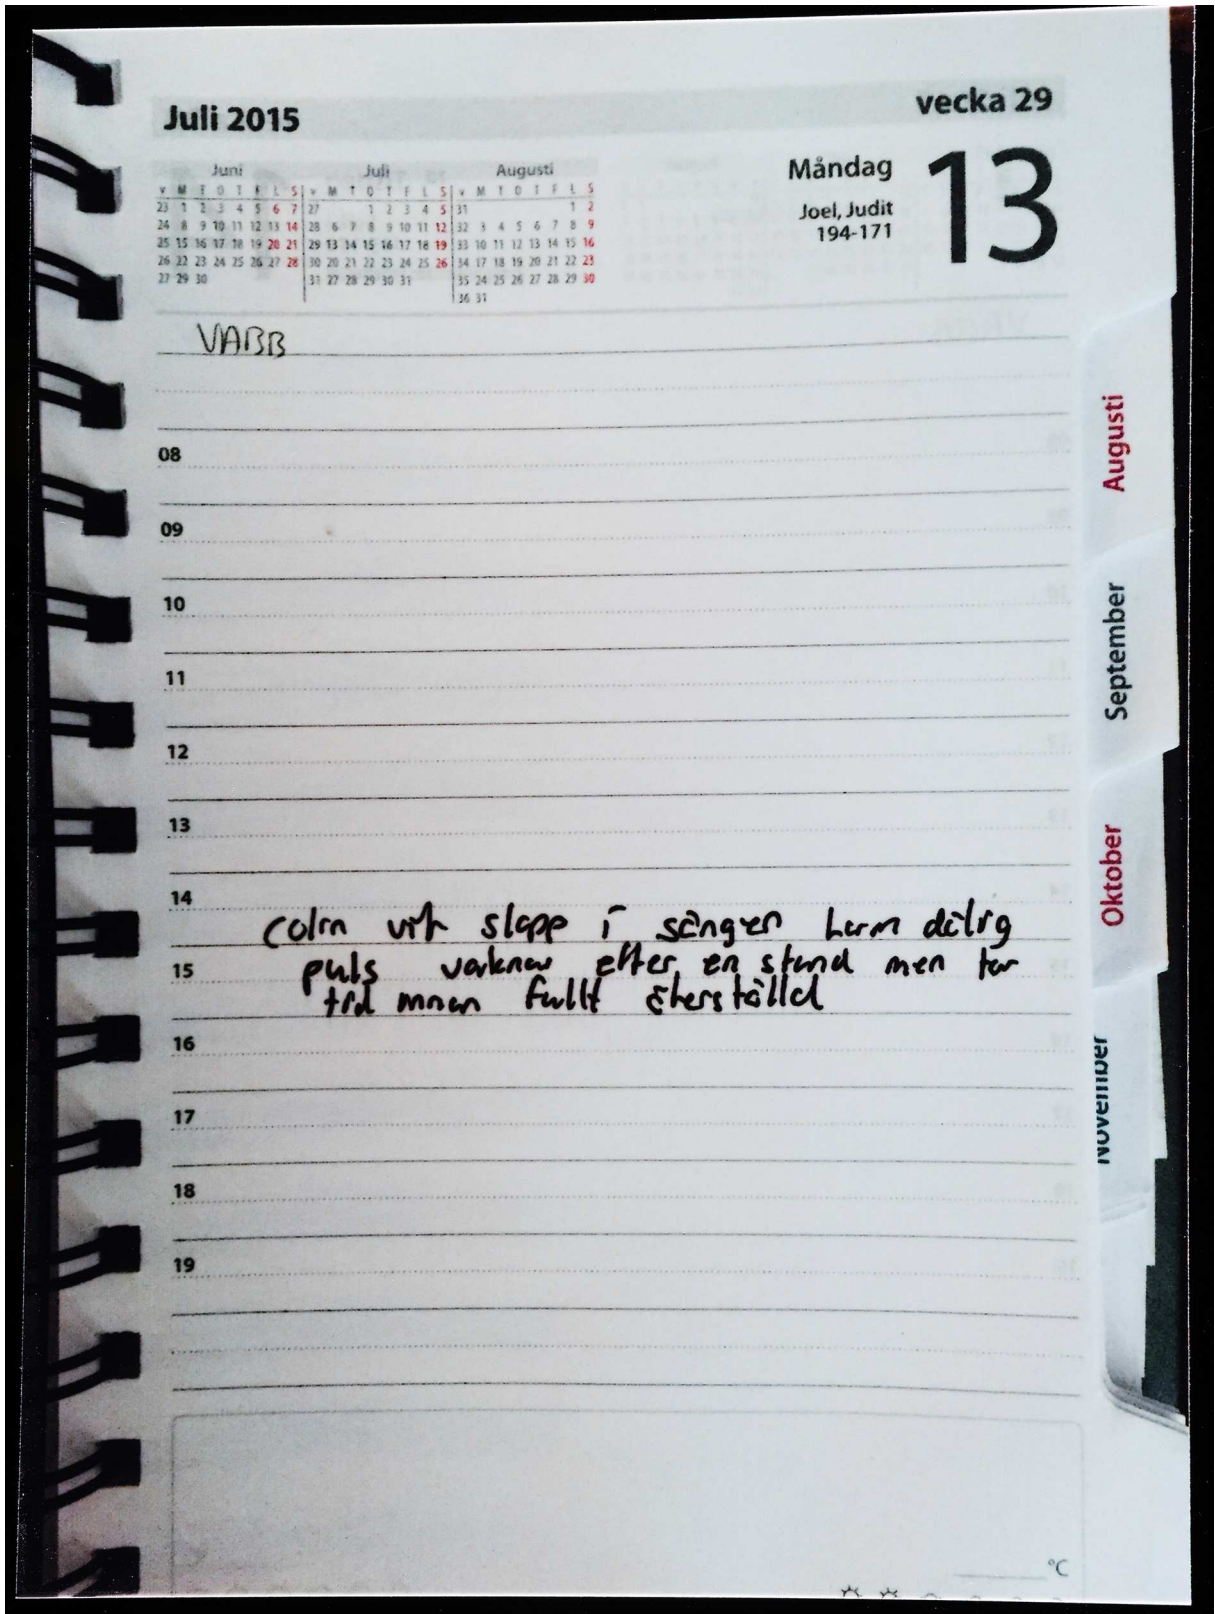 Juli 2015 vecka 29
Juni Juli Augusti
Måndag 13
Joel, Judit
194-171
v M T O T F L S v M T O T F L S v M T O T F L S
23 1 2 3 4 5 6 7 27 1 2 3 4 5 31 1 2
24 8 9 10 11 12 13 14 28 6 7 8 9 10 11 12 32 3 4 5 6 7 8 9
25 15 16 17 18 19 20 21 29 13 14 15 16 17 18 19 33 10 11 12 13 14 15 16
26 22 23 24 25 26 27 28 30 20 21 22 23 24 25 26 34 17 18 19 20 21 22 23
27 29 30 31 27 28 29 30 31 35 24 25 26 27 28 29 30
36 31
VABB
08
09
10
11
12
13
14
colin vit slapp i sängen dålig
15 puls vaknar efter en stund men tar
tid innan fullt återställd
16
17
18
19
°C
Augusti
September
Oktober
November